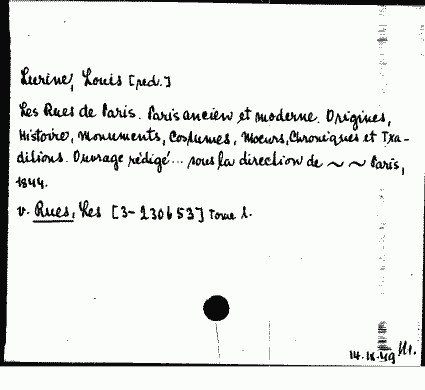 Lurine, Louis [red.]
Les Rues de Paris. Paris ancien et moderne. Origines,
Histoire, Monuments, Costumes, Moeurs, Chroniques et Tra-
ditions. Ouvrage rédigé... sous la direction de ~ ~ Paris,
1844.
v. Rues, Les [3-230653] Tome 1.
14.IX.49